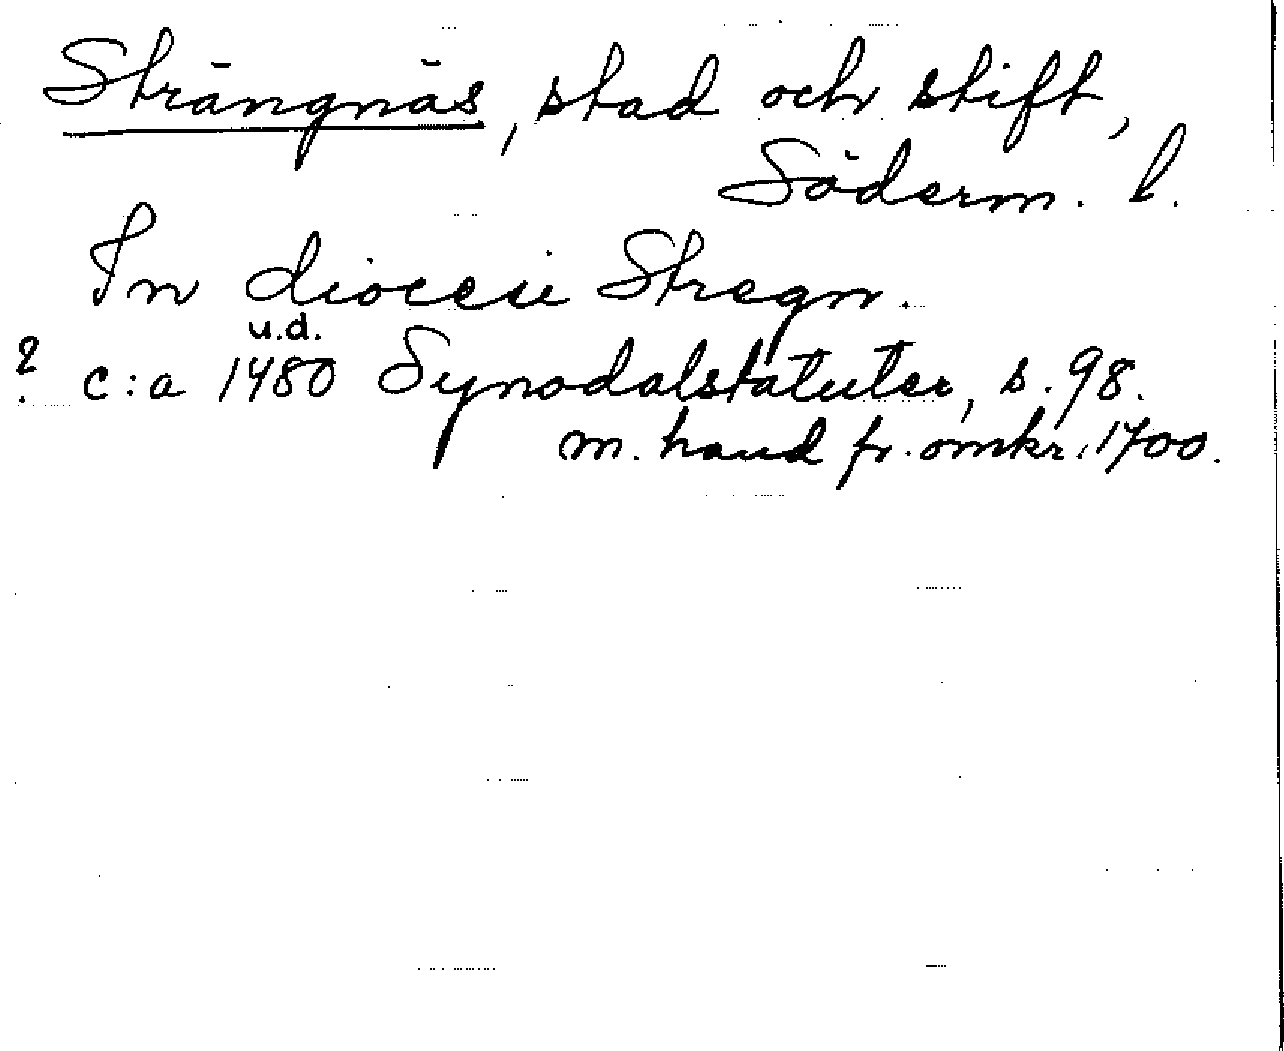 Strängnäs, stad och stift,
Söderm. l.
In diocesi Stregn.
u.d.
? c:a 1480 Synodalstatuter, s. 98.
m. hand fr. omkr. 1700.